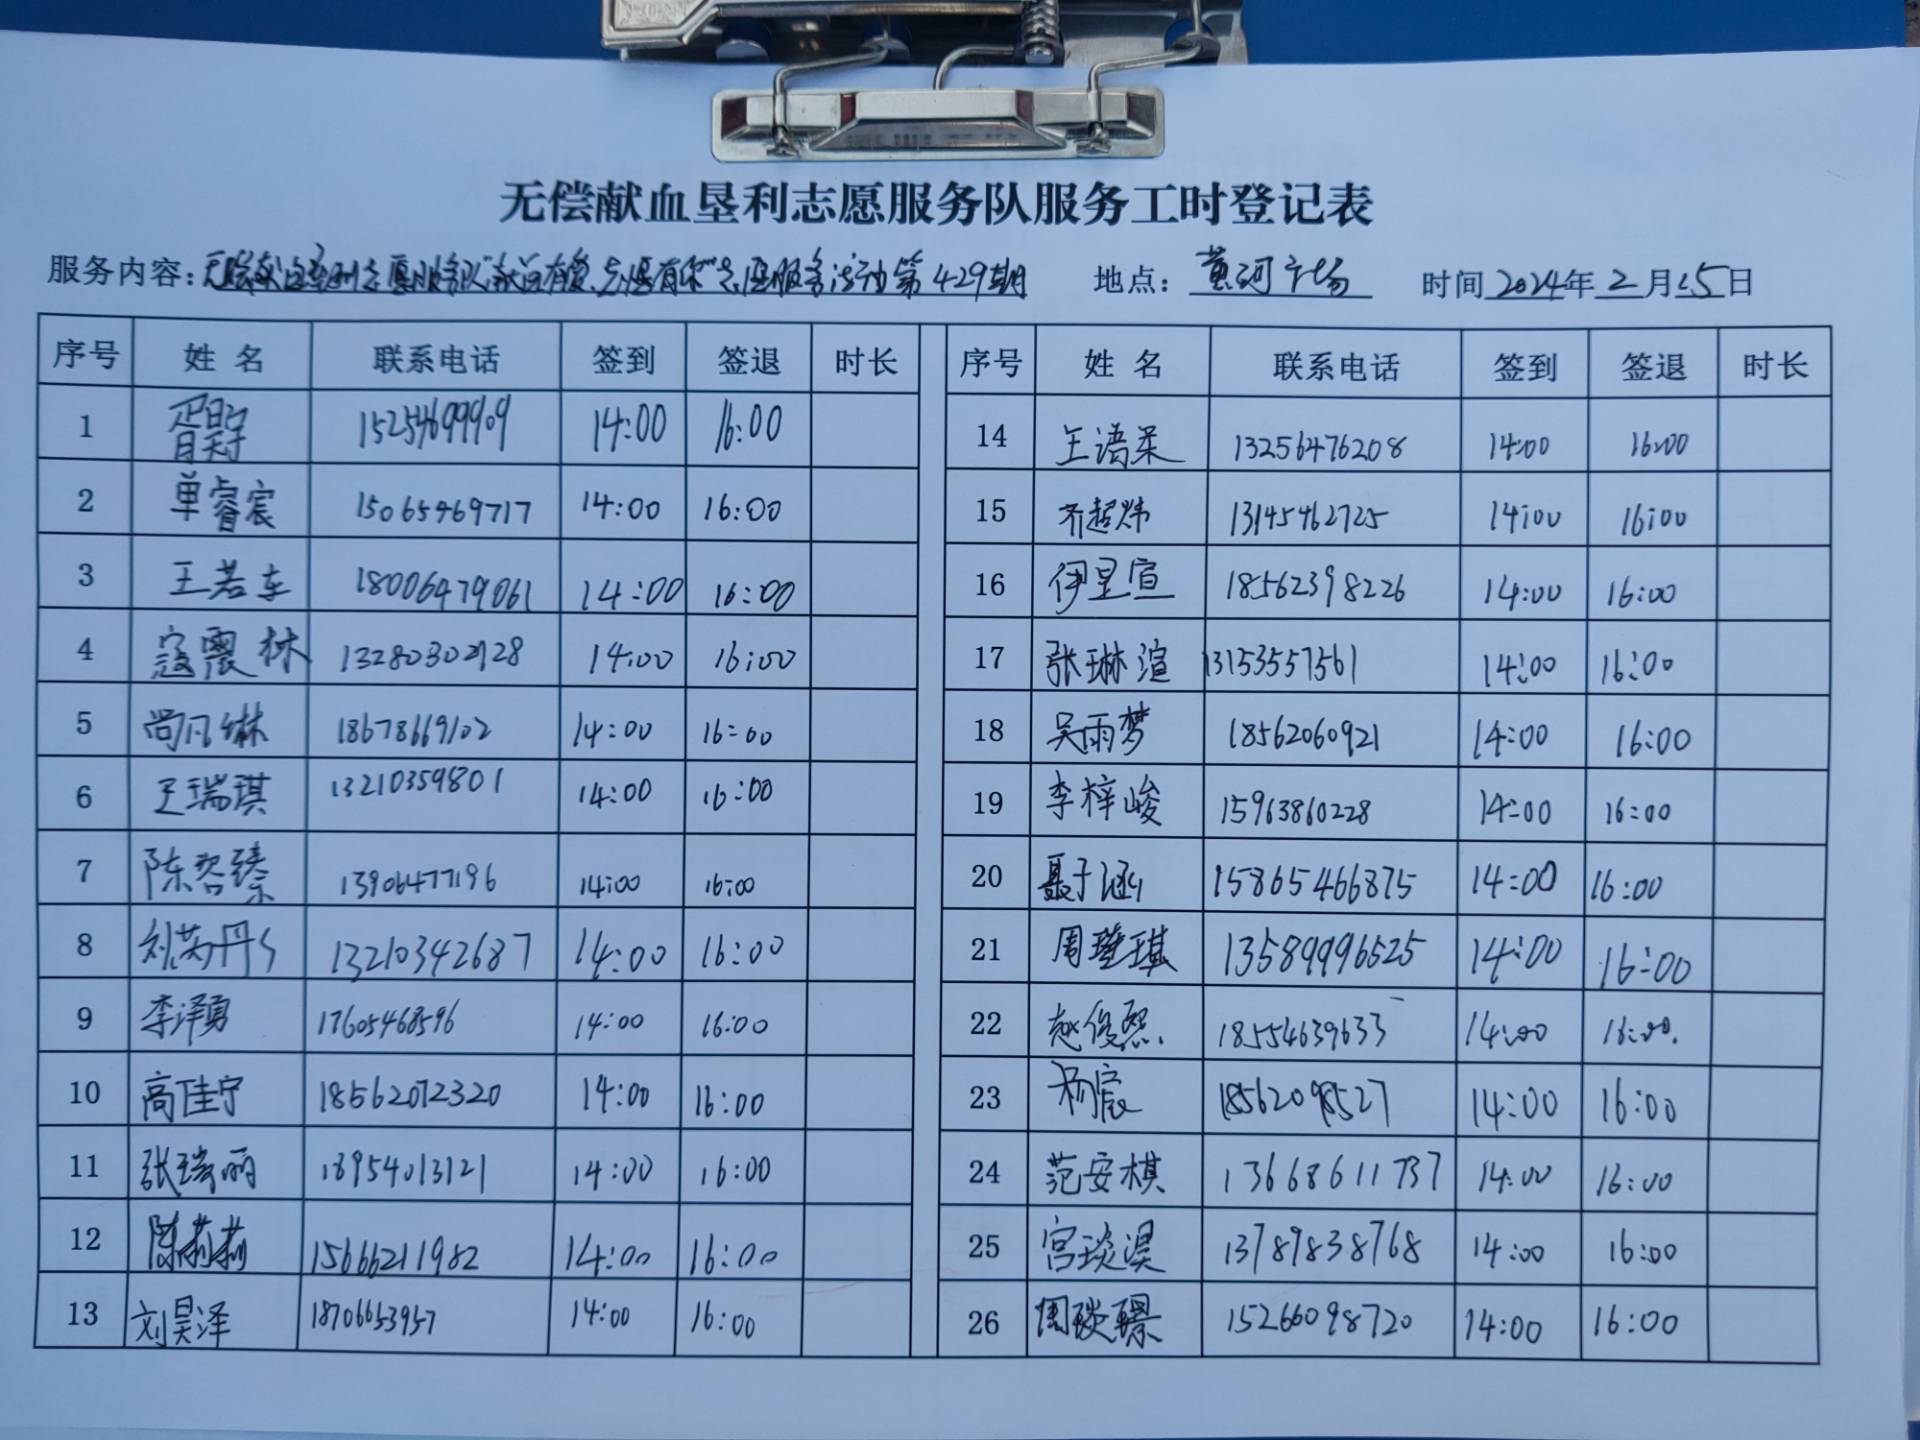 无偿献血垦利志愿服务队服务工时登记表
服务内容：无偿献血垦利志愿服务队"献血有爱、志愿有你"志愿服务活动第429期 地点：黄河广场 时间2024年2月25日
序号 姓名 联系电话 签到 签退 时长 序号 姓名 联系电话 签到 签退 时长
1 15254699909 14:00 16:00 14 王语呆 13256476208 14:00 16:00
2 单睿宸 15065469717 14:00 16:00 15 齐超炜 13145462725 14:00 16:00
3 王若车 18006479061 14:00 16:00 16 伊昱宣 18562398226 14:00 16:00
4 寇震林 13280302928 14:00 16:00 17 张琳渲 13153557561 14:00 16:00
5 尚凡琳 18678669102 14:00 16:00 18 吴雨梦 18562060921 14:00 16:00
6 王瑞琪 13210359801 14:00 16:00 19 李梓峻 15963860228 14:00 16:00
7 陈容臻 13906477196 14:00 16:00 20 聂子涵 15865466875 14:00 16:00
8 13210342687 14:00 16:00 21 周琪 13589996525 14:00 16:00
9 李泽勇 17605468596 14:00 16:00 22 赵俊熙 18554639633 14:00 16:00
10 高佳宁 18562072320 14:00 16:00 23 杨宸 18562098527 14:00 16:00
11 张瑞丽 18954013121 14:00 16:00 24 范安棋 13668611737 14:00 16:00
12 陈莉莉 15666211982 14:00 16:00 25 宫琰淏 13789838768 14:00 16:00
13 刘昊泽 18706653957 14:00 16:00 26 周琰璟 15266098720 14:00 16:00